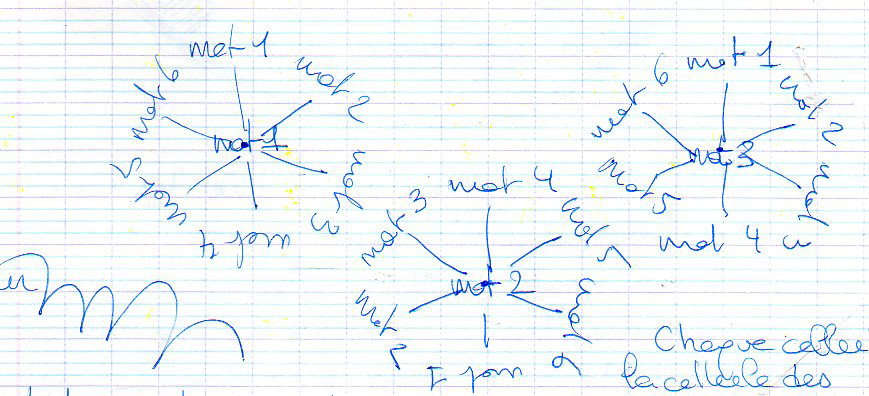 mot 1
mot 2
mot 3
mot 4
mot 5
mot 6
mot 1
mot 4
mot 5
mot 6
mot 1
mot 2
mot 3
mot 2
mot 1
mot 2
mot 3
mot 4
mot 5
mot 6
mot 3
Chaque
des